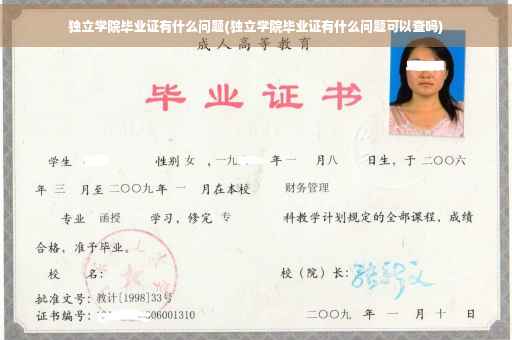 独立学院毕业证有什么问题(独立学院毕业证有什么问题可以查吗)
成人高等教育
毕业证书
学生 性别 女 ,一九 年 一 月八 日生，于 二〇〇六
年 三 月至 二〇〇九 年 一 月在本校 财务管理
专业 函授 学习，修完 专 科教学计划规定的全部课程，成绩
合格，准予毕业。
校 名： 校（院）长：
批准文号：教计[1998]33号
证书编号： 06001310 二〇〇九 年 一 月 十 日